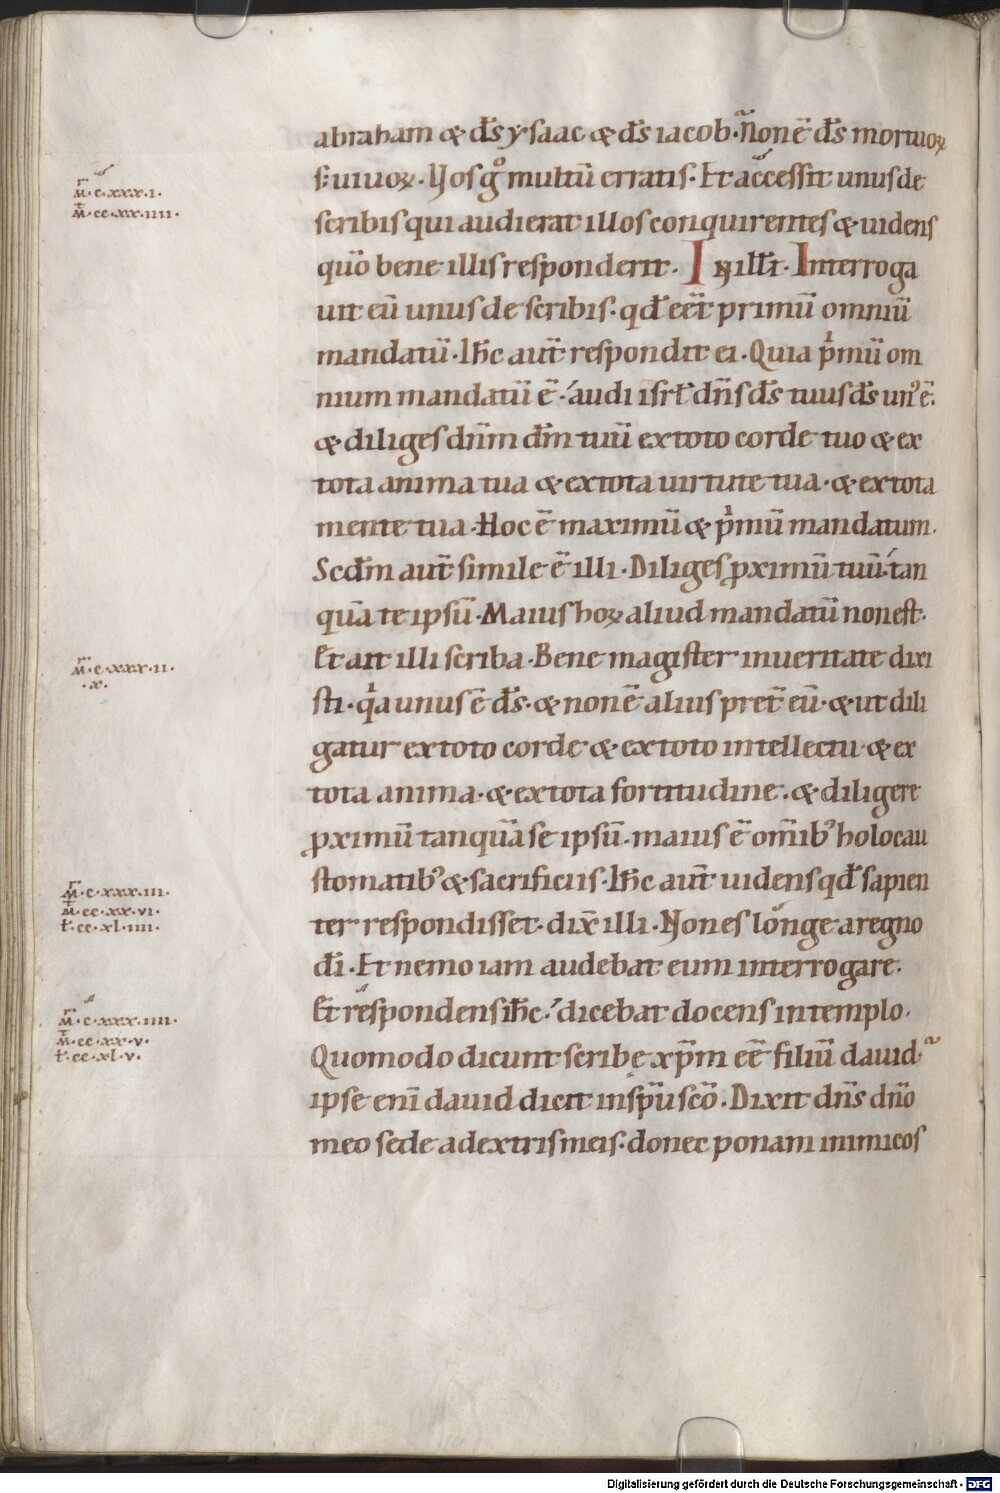 abraham & d̄s ysaac & d̄s iacob· Non ē d̄s mortuoꝝ
s; uiuoꝝ· Uos gͦ multū erratis· Et accessit unus de
scribis qui audierat illos conquirentes & uidens
quō bene illis responderit· I illī t̄· Interroga
uit eū unus de scribis· qd̄ eēt primū omniū
mandatū· Ih̄c aut̄ respondit ei· Quia pͥmū om
nium mandatū ē· audi isrl̄ dn̄s d̄s tuus d̄s unꝰ ē·
& diliges dn̄m dm̄ tuū ex toto corde tuo & ex
tota anima tua & ex tota uirtute tua· & ex tota
mente tua· Hoc ē maximū & pͥmū mandatum·
Scdm̄ aut̄ simile ē illi· Diliges ꝓximū tuū tan
quā te ipsū· Maius hoꝝ aliud mandatū non est·
Et ait illi scriba· Bene magister in ueritate dixi
sti· qͥa unus ē d̄s· & non ē alius pret̄ eū· & ut dili
gatur ex toto corde & ex toto intellectu· & ex
tota anima· & ex tota fortitudine· & diligere
ꝓximū tanquā se ipsū· maius ē om̄ibꝰ holocau
stomatibꝰ & sacrificiis· Ih̄c aut̄ uidens qd̄ sapien
ter respondisset· dix̄ illi· Non es longe a regno
dī· Et nemo iam audebat eum interrogare·
Et respondens ih̄c· dicebat docens in templo·
Quomodo dicunt scribę xp̄m eē filiū dauid·
ipse enī dauid dicit in sp̄u scō· Dixit dn̄s dn̄o
meo sede a dextris meis· donec ponam inimicos
m̄·c·xxx·i·
m̄·cc·xx·iiii·
m̄·c·xxx·ii·
·x·
m̄·c·xxx·iii·
m̄·cc·xx·vi·
l̄·cc·xl·iiii·
m̄·c·xxx·iiii·
m̄·cc·xx·v·
l̄·cc·xl·v·
Digitalisierung gefördert durch die Deutsche Forschungsgemeinschaft - DFG